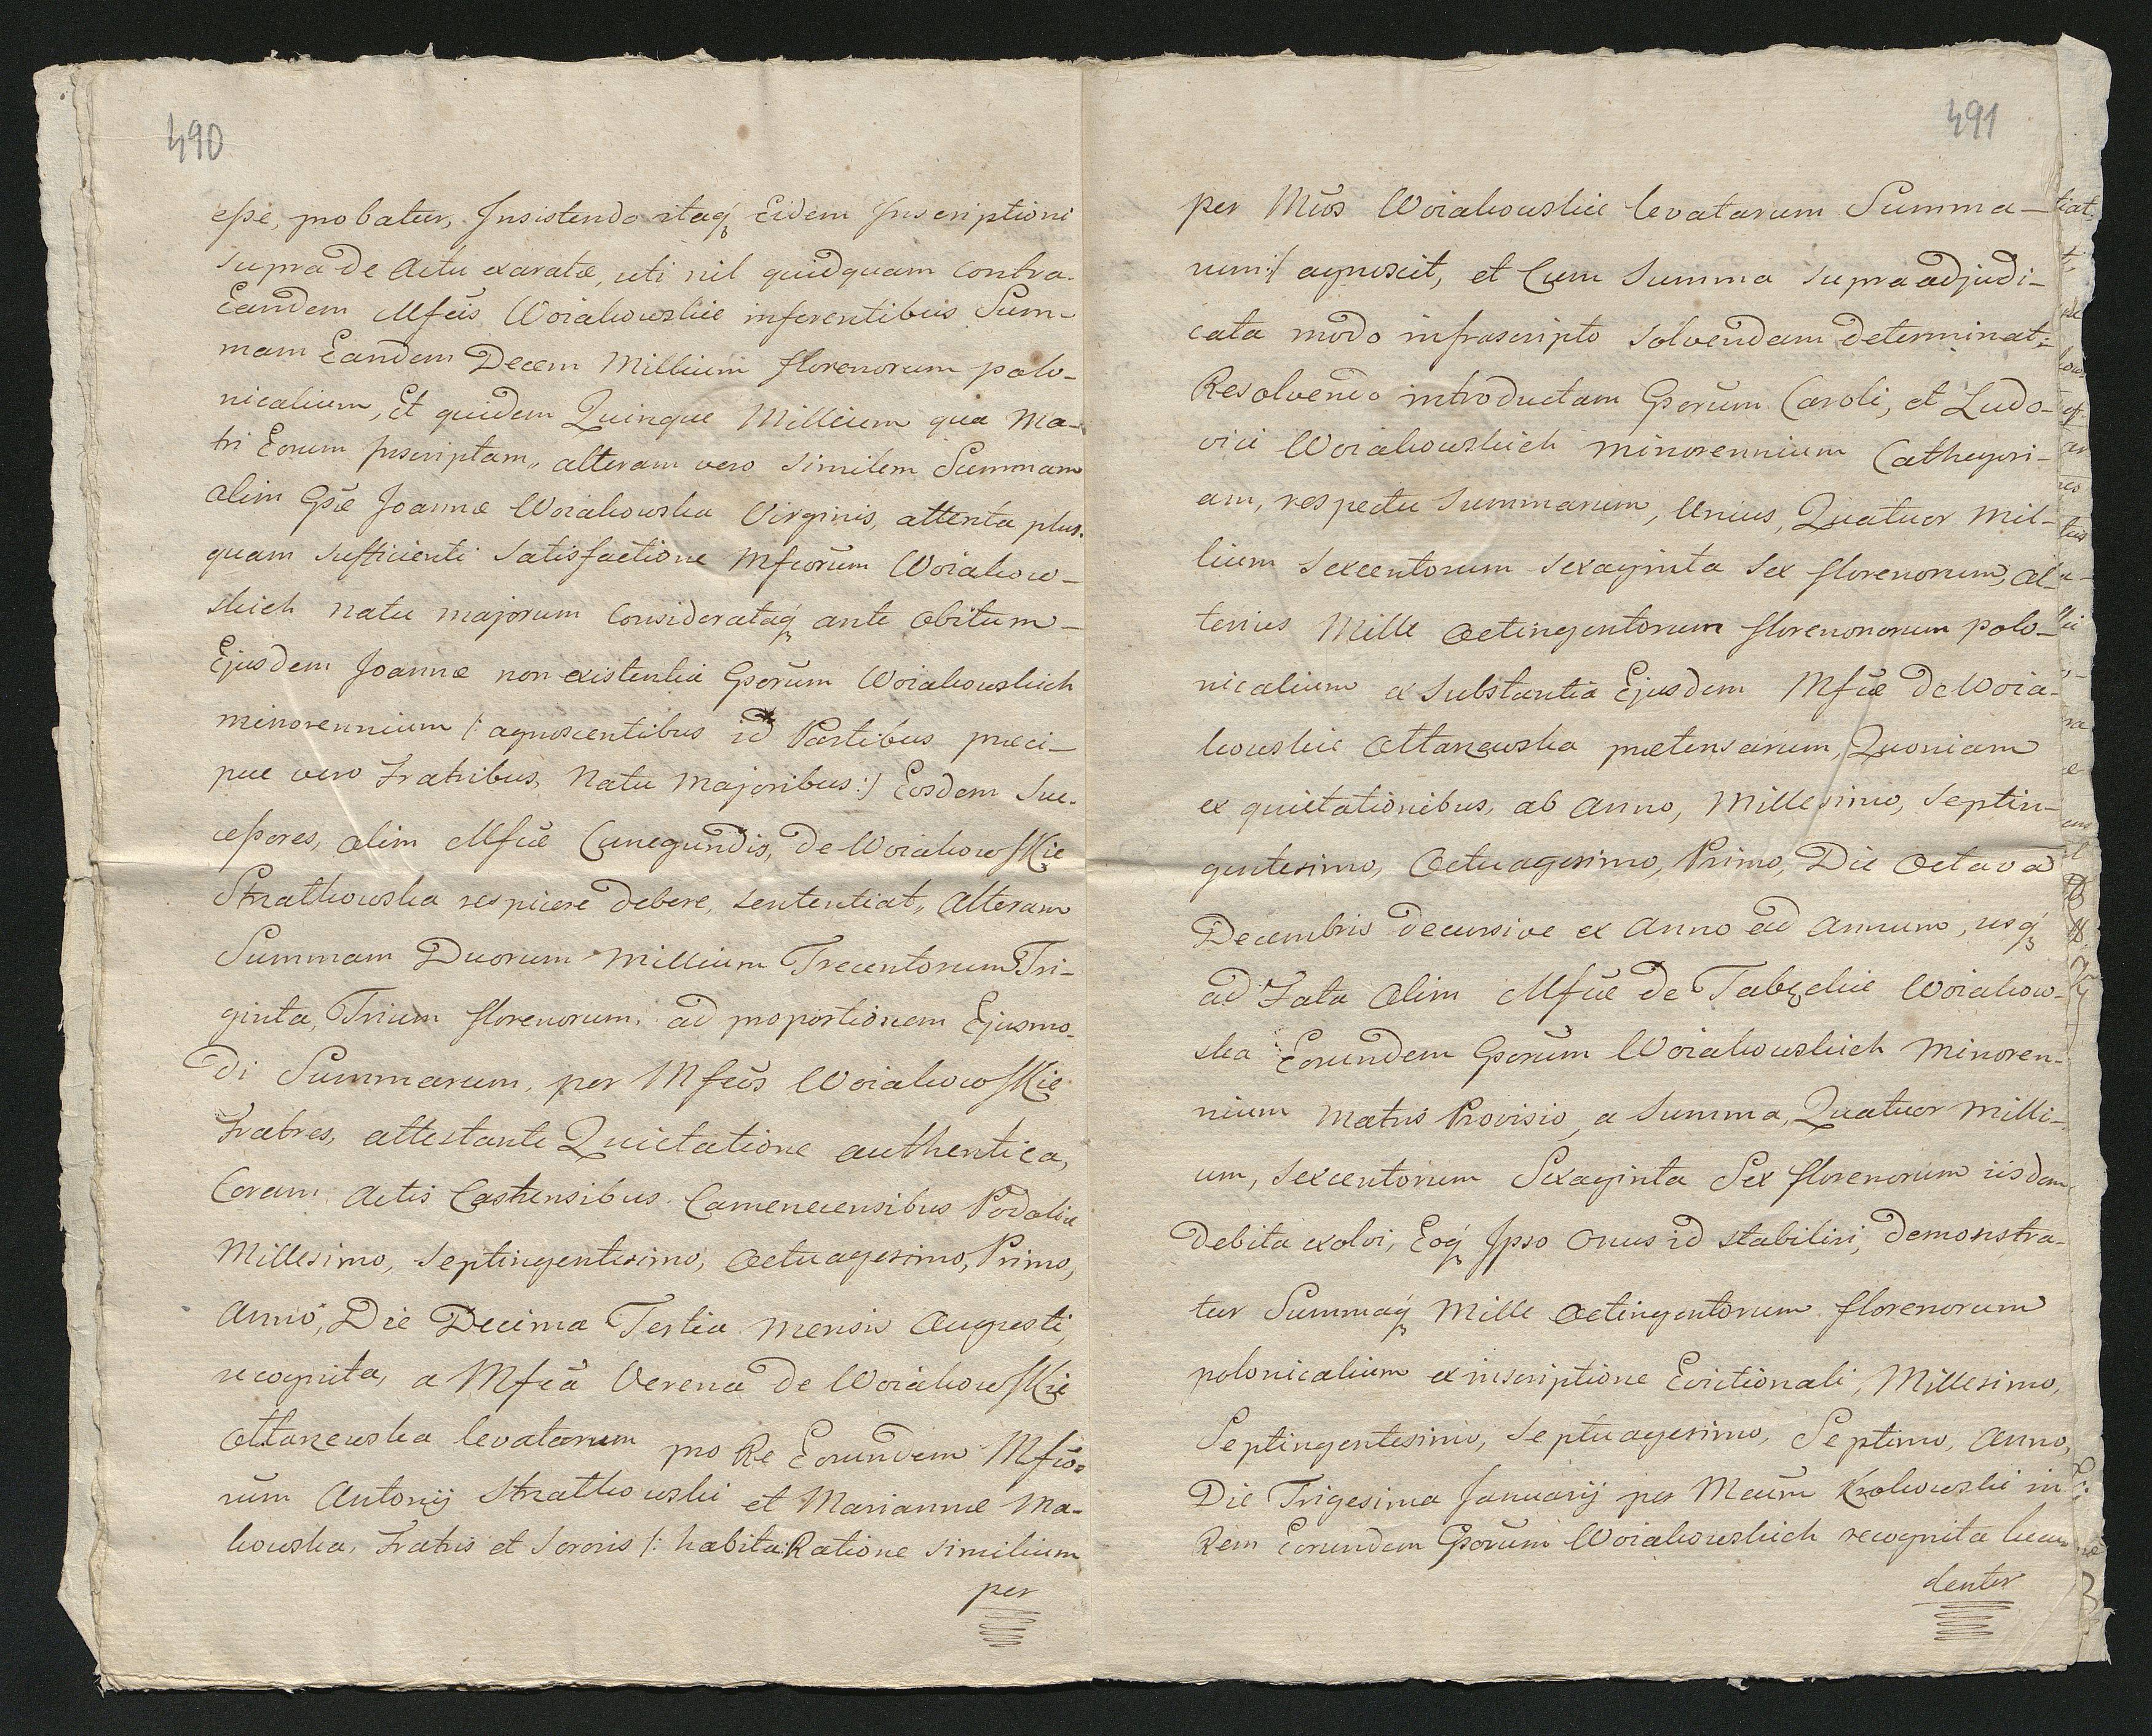 490
eße, probatur, Insistendo itaq́ Eidem Inscriptioni
supra de Actu exaratæ, uti nil quidquam contra
Eandem Mfcis Woiakowskie inferentibus Sum-
mam Eandem Decem Millium florenorum polo-
nicalium, Et quidem Quinque Millium qua Ma-
tri Eorum Inscriptam, alteram vero similem Summam
olim Gsæ Joannæ Woiakowska Virginis, attenta plus
quam sufficienti satisfactione Mfcorum Woiakow-
skich natu majorum Considerataq́ ante obitum-
Ejusdem Joannæ non existentia Gsorum Woiakowskich
minorennium /: agnoscentibus id Partibus præci-
pue vero Fratribus, Natu Majoribus :/ Eosdem Suc-
ceßores, olim Mfcæ Cunegundis, de Woiakowskie
Strathowska respicere debere, sententiat, Alteram
Summam Duorum Millium Trecentorum Tri-
ginta, Trium florenorum, ad proportionem Ejusmo-
di Summarum, per Mfcos Woiakowskie
Fratres, attestante Quietatione authentica,
Coram Actis Castrensibus Camenecensibus Podoliæ
Millesimo, Septingentesimo, Octuagesimo, Primo,
Anno, Die Decima Tertia Mensis Augusti,
recognita, a Mfca Verena de Woiakowskie
Ottanewska levatarum pro Re Eorundem Mfco-
rum Antonij Strathowski et Mariannæ Ma-
kowska, Fratris et Sororis /: habita Ratione similium
per
491
per Mcos Woiakowskie levatarum Summa-
rum :/ agnoscit, et Cum Summa supra adjudi-
cata modo infrascripto solvendam determinat;
Resolvendo introductam Gsorum Caroli, et Ludo-
vici Woiakowskich minorennium Cathegori-
am, respectu Summarum, Unius, Quatuor Mil-
lium Sexcentorum Sexaginta Sex florenorum, al-
terius Mille Octingentorum florenonorum polo-
nicalium a Substantia Ejusdem Mfcæ de Woia-
kowskie Ottanewska prætensarum, Quoniam
ex quietationibus, ab Anno, Millesimo, Septin-
gentesimo, Octuagesimo, Primo, Die Octava
Decembris decursive ex Anno ad Annum, usq́
ad Fata olim Mfcæ de Tabęckie Woiakow-
ska Eorundem Gsorum Woiakowskich Minoren-
nium Matris Provisio, a Summa, Quatuor Milli-
um, Sexcentorum Sexaginta Sex florenorum iisdem
debita exolvi, Eoq́ Ipso Onus id stabiliri, demonstra-
tur Summaq́ Mille Octingentorum florenorum
polonicalium ex inscriptione Evictionali, Millesimo,
Septingentesimo, Septuagesimo, Septimo, Anno,
Die Trigesima Januarij per Mcum Krakowski in
Rem Eorundem Gsorum Woiakowskich recognita lucu-
lenter